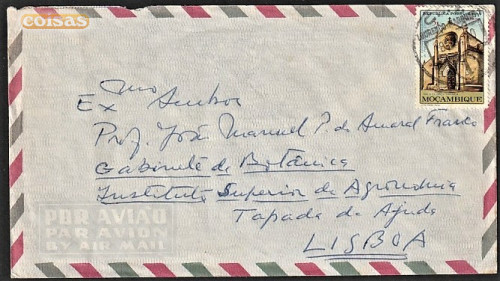 coisas
REPÚBLICA PORTUGUESA
MOÇAMBIQUE
Exmo Senhor
Prof. José Manuel P. de Amaral Franco
Gabinete de Botânica
Instituto Superior de Agronomia
Tapada da Ajuda
LISBOA
POR AVIÃO
PAR AVION
BY AIR MAIL